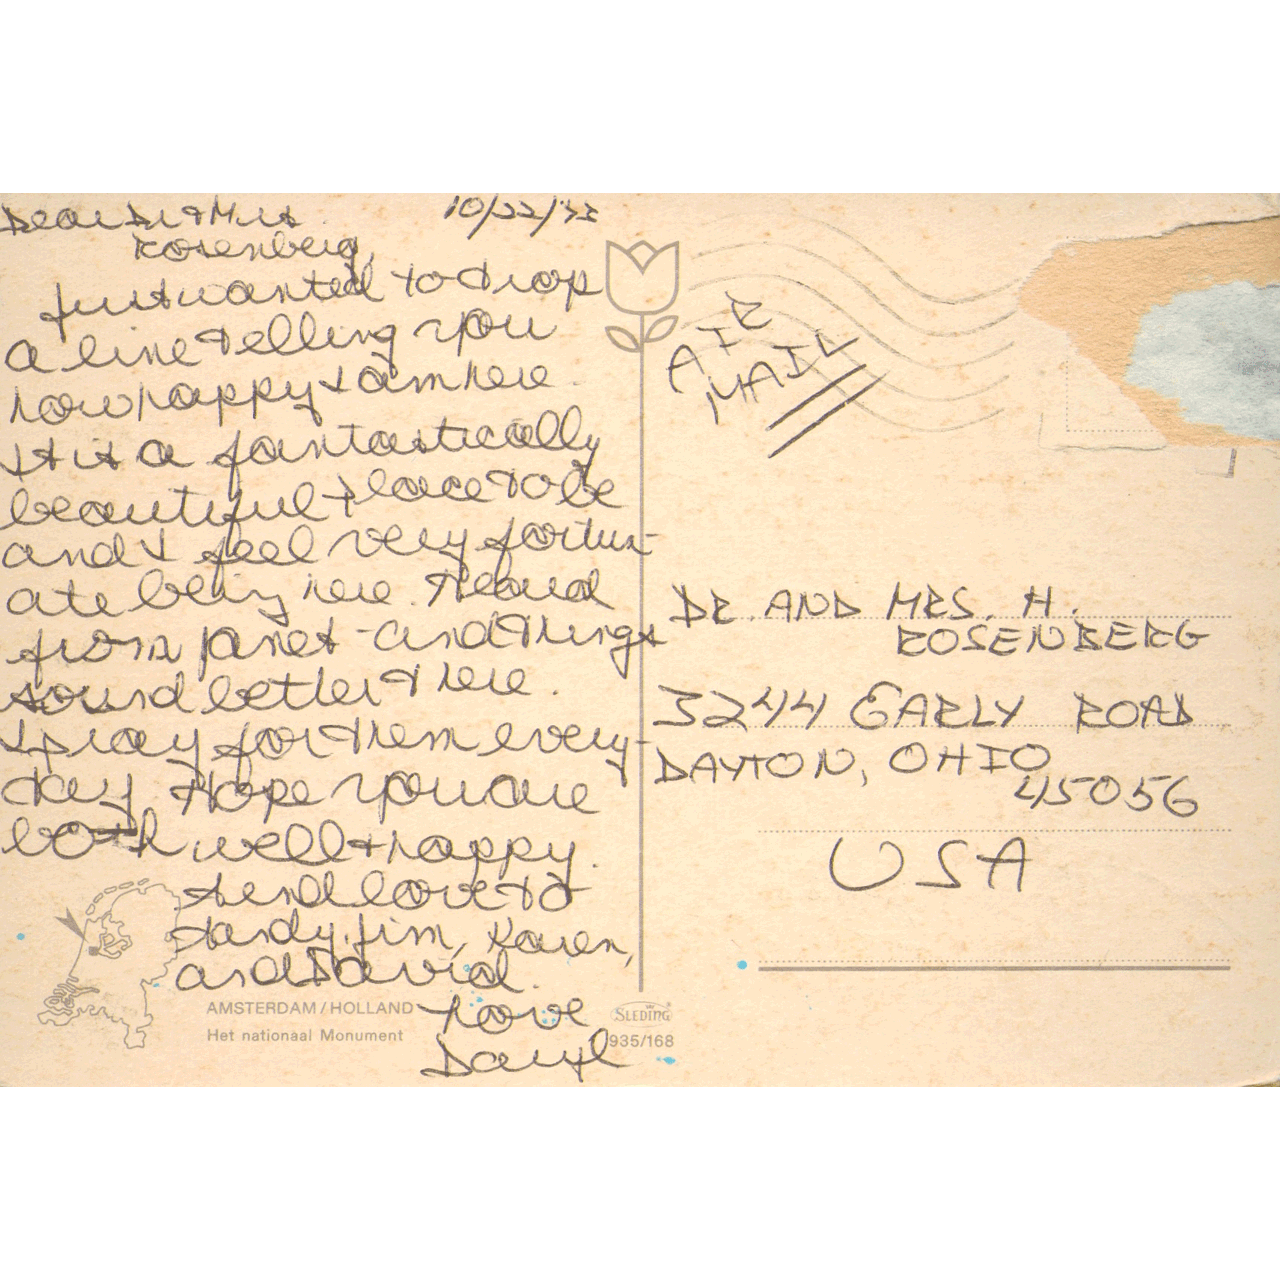 Dear Dr + Mrs. 10/22/73
Rosenberg,
Just wanted to drop
a line telling you
how happy I am here.
It is a fantastically
beautiful place to be
and I feel very fortun-
ate being here. Heard
from Janet - and things
sound better there.
I pray for them every-
day. Hope you are
both well + happy.
Send love to
Sandy, Jim, Karen,
and David.
Love
Daryl
AMSTERDAM / HOLLAND
Het nationaal Monument
SLEDING®
935/168
AIR
MAIL
DR. AND MRS. H.
ROSENBERG
3244 EARLY ROAD
DAYTON, OHIO
45056
USA